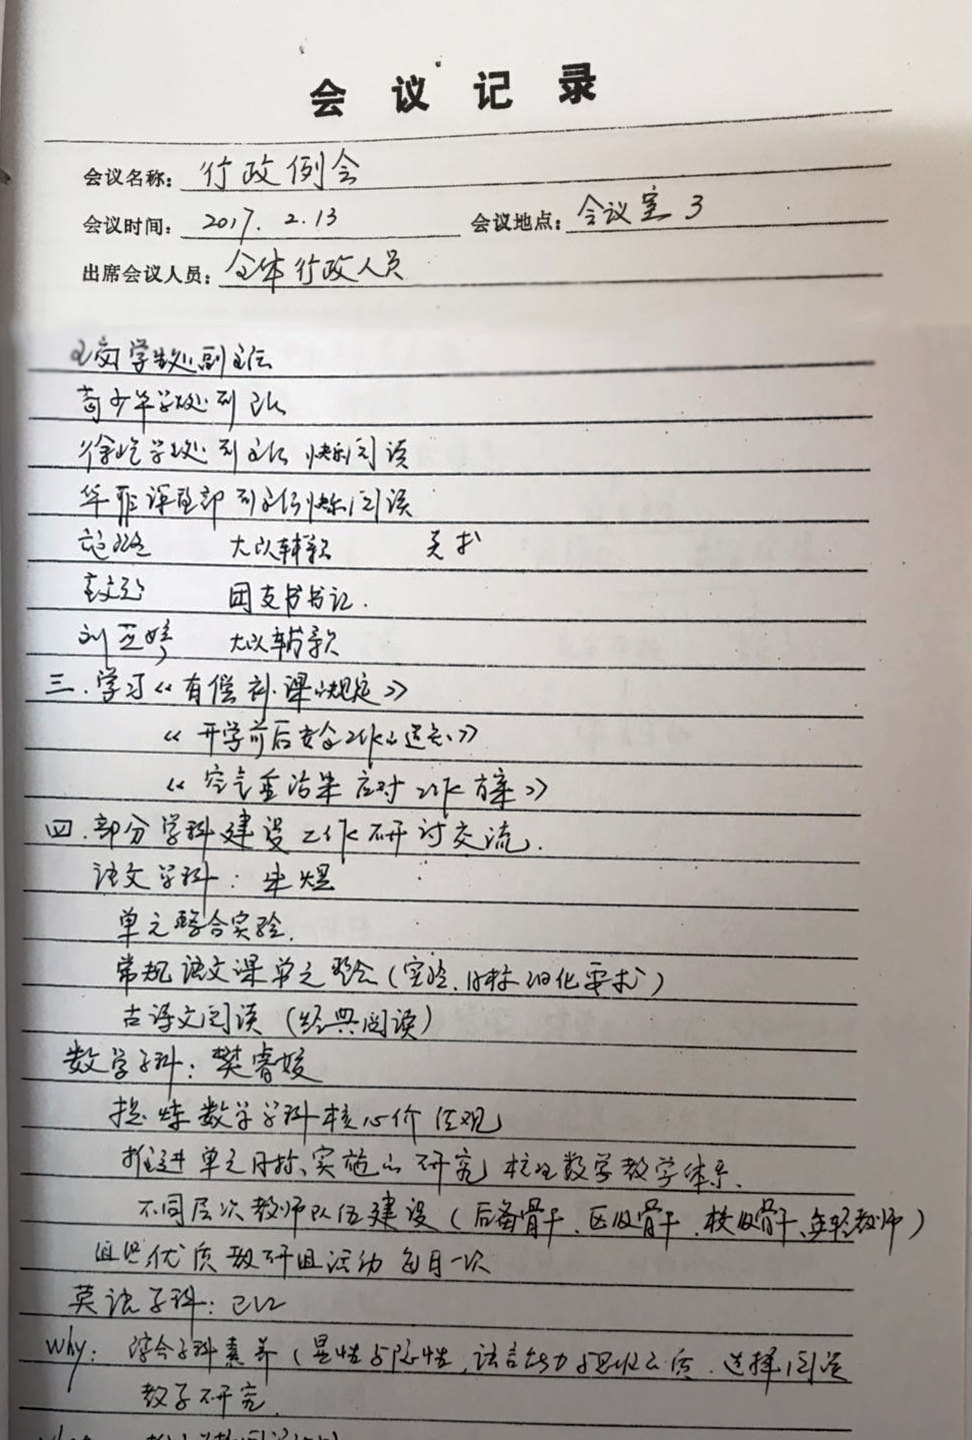 会议记录
会议名称: 行政例会
会议时间: 2017. 2.13 会议地点: 会议室3
出席会议人员: 全体行政人员
学发处副主任
学发处副主任
学发处副主任 快乐阅读
华菲课程部副主任 快乐阅读
大队辅导 美术
团支部书记.
刘 大队辅导
三.学习《有偿补课的规定》
《开学前后安全工作的通知》
《空气重污染应对工作方案》
四.部分学科建设工作研讨交流.
语文学科: 朱煜
单元整合实验.
常规语文课单元整合(实验、目标细化要求)
古诗文阅读(经典阅读)
数学学科: 樊睿姣
提炼数学学科核心价值观
推进单元目标、实施的研究 梳理数学教学体系.
不同层次教师队伍建设(后备骨干、区级骨干、校级骨干、年轻教师)
组织优质教研组活动 每月一次
英语学科:
why: 综合学科素养(显性与隐性,语言能力与思维品质.选择阅读
教学研究.